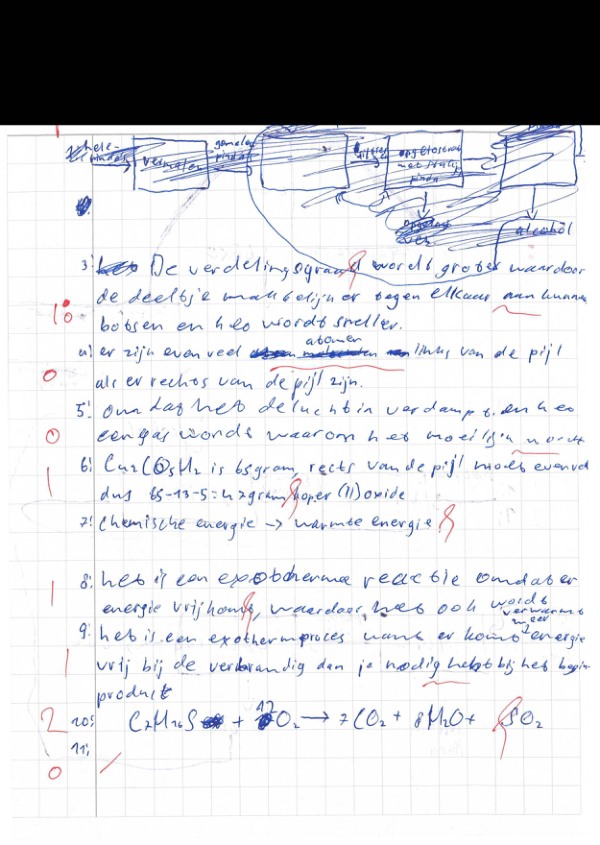 hele pinda's
vermalen
gemalen pinda
alcohol
3: De verdelingsgraad wordt groter waardoor
de deeltje makkelijker tegen elkaar aan kunnen
botsen en het wordt sneller.
1
4: er zijn evenveel atomen links van de pijl
0
als er rechts van de pijl zijn.
5: omdat het de lucht in verdampt en het
0
een gas wordt waarom het moeilijk wordt
6: Cu2CO5H2 is 65gram, rects van de pijl moet evenveel
1
dus 65-13-5=47gram koper (II)oxide
7: Chemische energie -> warmte energie
8: het is een exotherme reactie omdat er
1
energie vrijkomt, waardoor het ook wordt verwarmt
9: het is een exothermproces want er komt meer energie
1
vrij bij de verbrandig dan je nodig hebt bij het begin
product
2
10: C7H16S + 12O2 → 7CO2 + 8H2O + SO2
11:
0